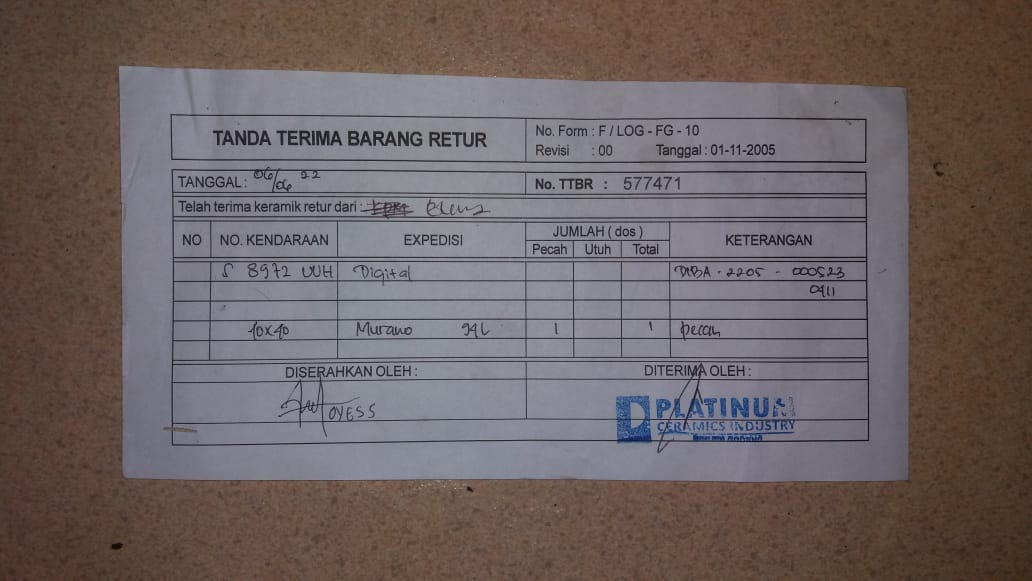 TANDA TERIMA BARANG RETUR
No. Form : F / LOG - FG - 10
Revisi : 00 Tanggal : 01-11-2005
TANGGAL : 06/06 22
No. TTBR : 577471
Telah terima keramik retur dari :
NO NO. KENDARAAN EXPEDISI JUMLAH ( dos ) KETERANGAN
Pecah Utuh Total
S 8972 UUH Digital DIBA - 2205 - 000523
0911
40x40 Murano 1 1 pecah
DISERAHKAN OLEH : DITERIMA OLEH :
OYESS
PLATINUM
CERAMICS INDUSTRY